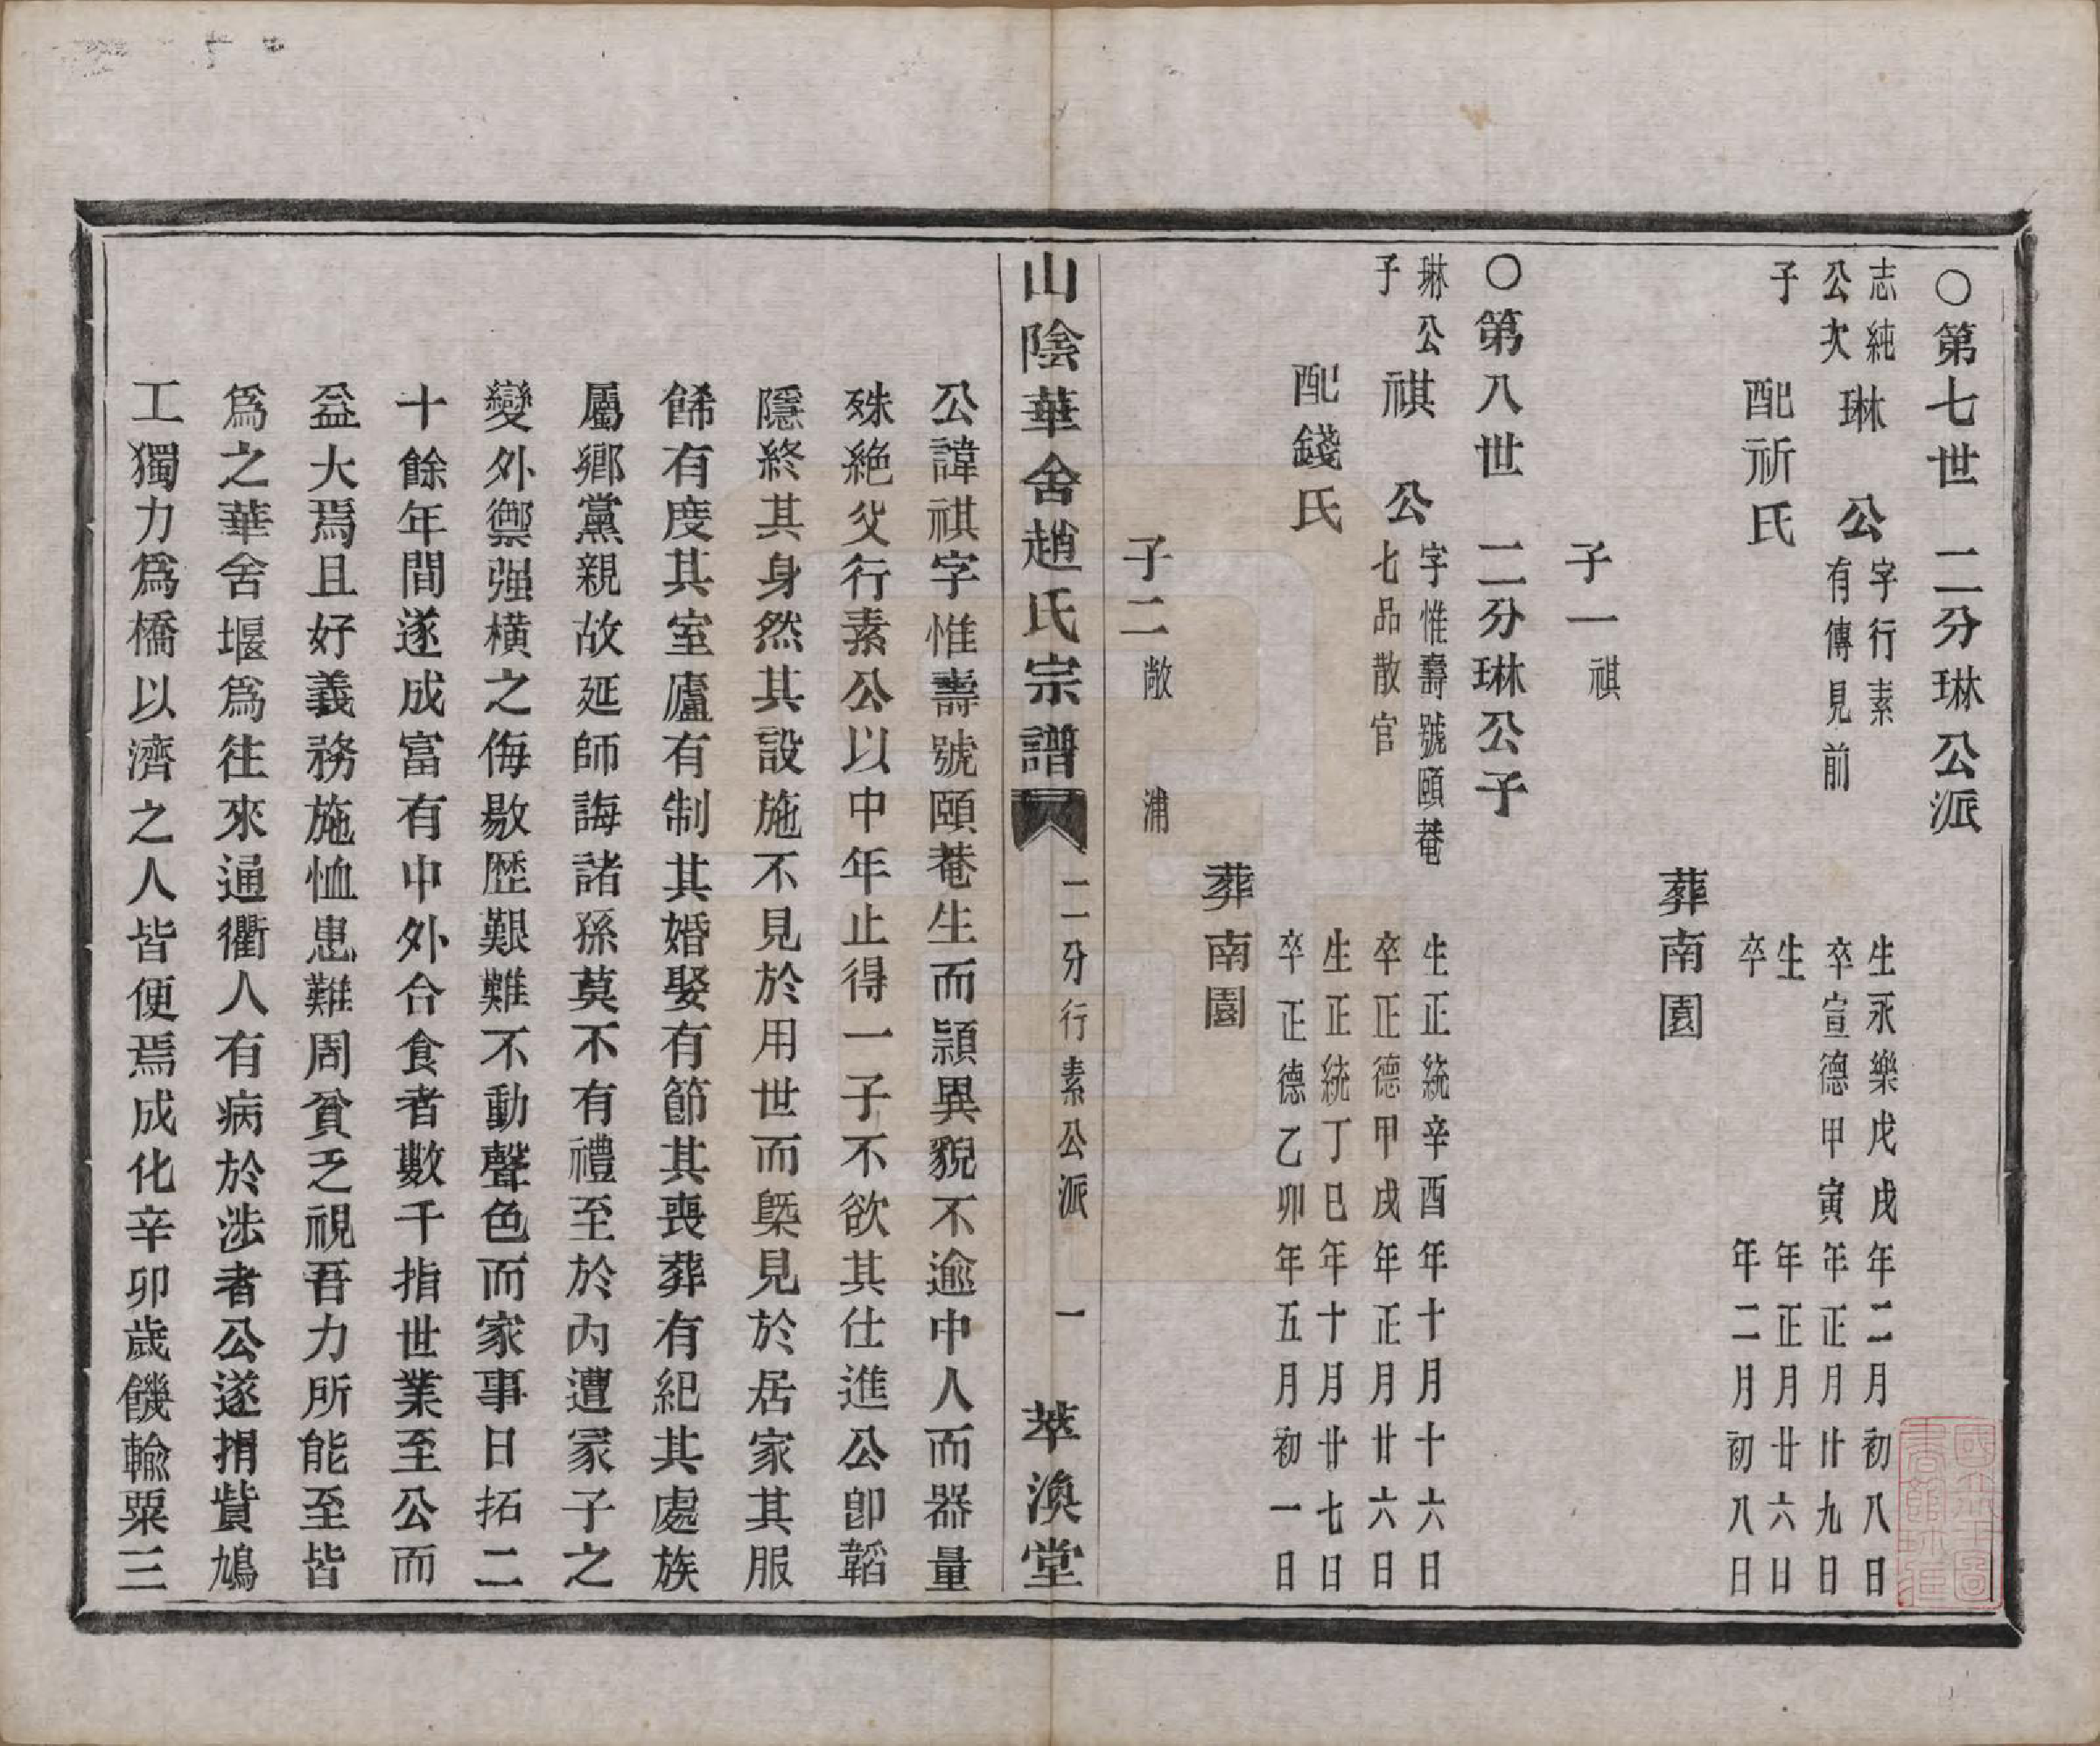 ○第七世　二分琳公派
志純公次子　琳　公　字行素有傳見前　生永樂戊戌年二月初八日　卒宣德甲寅年正月廿九日
配祈氏　生　年正月廿六日　卒　年二月初八日
葬南園
子一　祺
○第八世　二分琳公子
琳公子　祺　公　字惟壽號頤菴七品散官　生正統辛酉年十月十六日　卒正德甲戌年正月廿六日
配錢氏　生正統丁巳年十月廿七日　卒正德乙卯年五月初一日
葬南園
子二　敞　浦
山陰華舍趙氏宗譜　二分行素公派　一　萃渙堂
公諱祺字惟壽號頤菴生而頴異貌不逾中人而器量
殊絶父行素公以中年止得一子不欲其仕進公卽韜
隱終其身然其設施不見於用世而槩見於居家其服
餙有度其室廬有制其婚娶有節其喪葬有紀其處族
屬鄉黨親故延師誨諸孫莫不有禮至於內遭冡子之
變外禦强橫之侮敭歷艱難不動聲色而家事日拓二
十餘年間遂成富有中外合食者數千指世業至公而
益大焉且好義務施恤患難周貧乏視吾力所能至皆
爲之華舍堰爲往來通衢人有病於涉者公遂捐貲鳩
工獨力爲橋以濟之人皆便焉成化辛卯歲饑輸粟三
國立北平圖書館珍藏